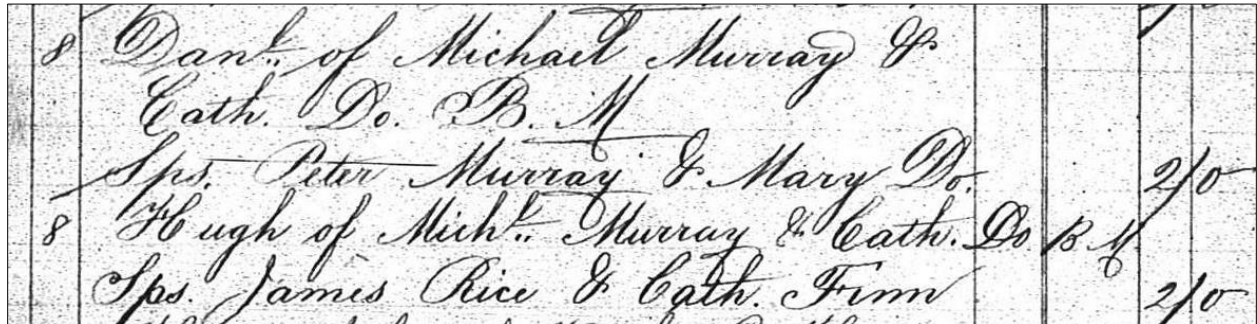 8 Danl. of Michael Murray &
Cath. Do. B. M
Sps. Peter Murray & Mary Do. 2/0
8 Hugh of Michl. Murray & Cath. Do B M.
Sps. James Rice & Cath. Finn 2/0